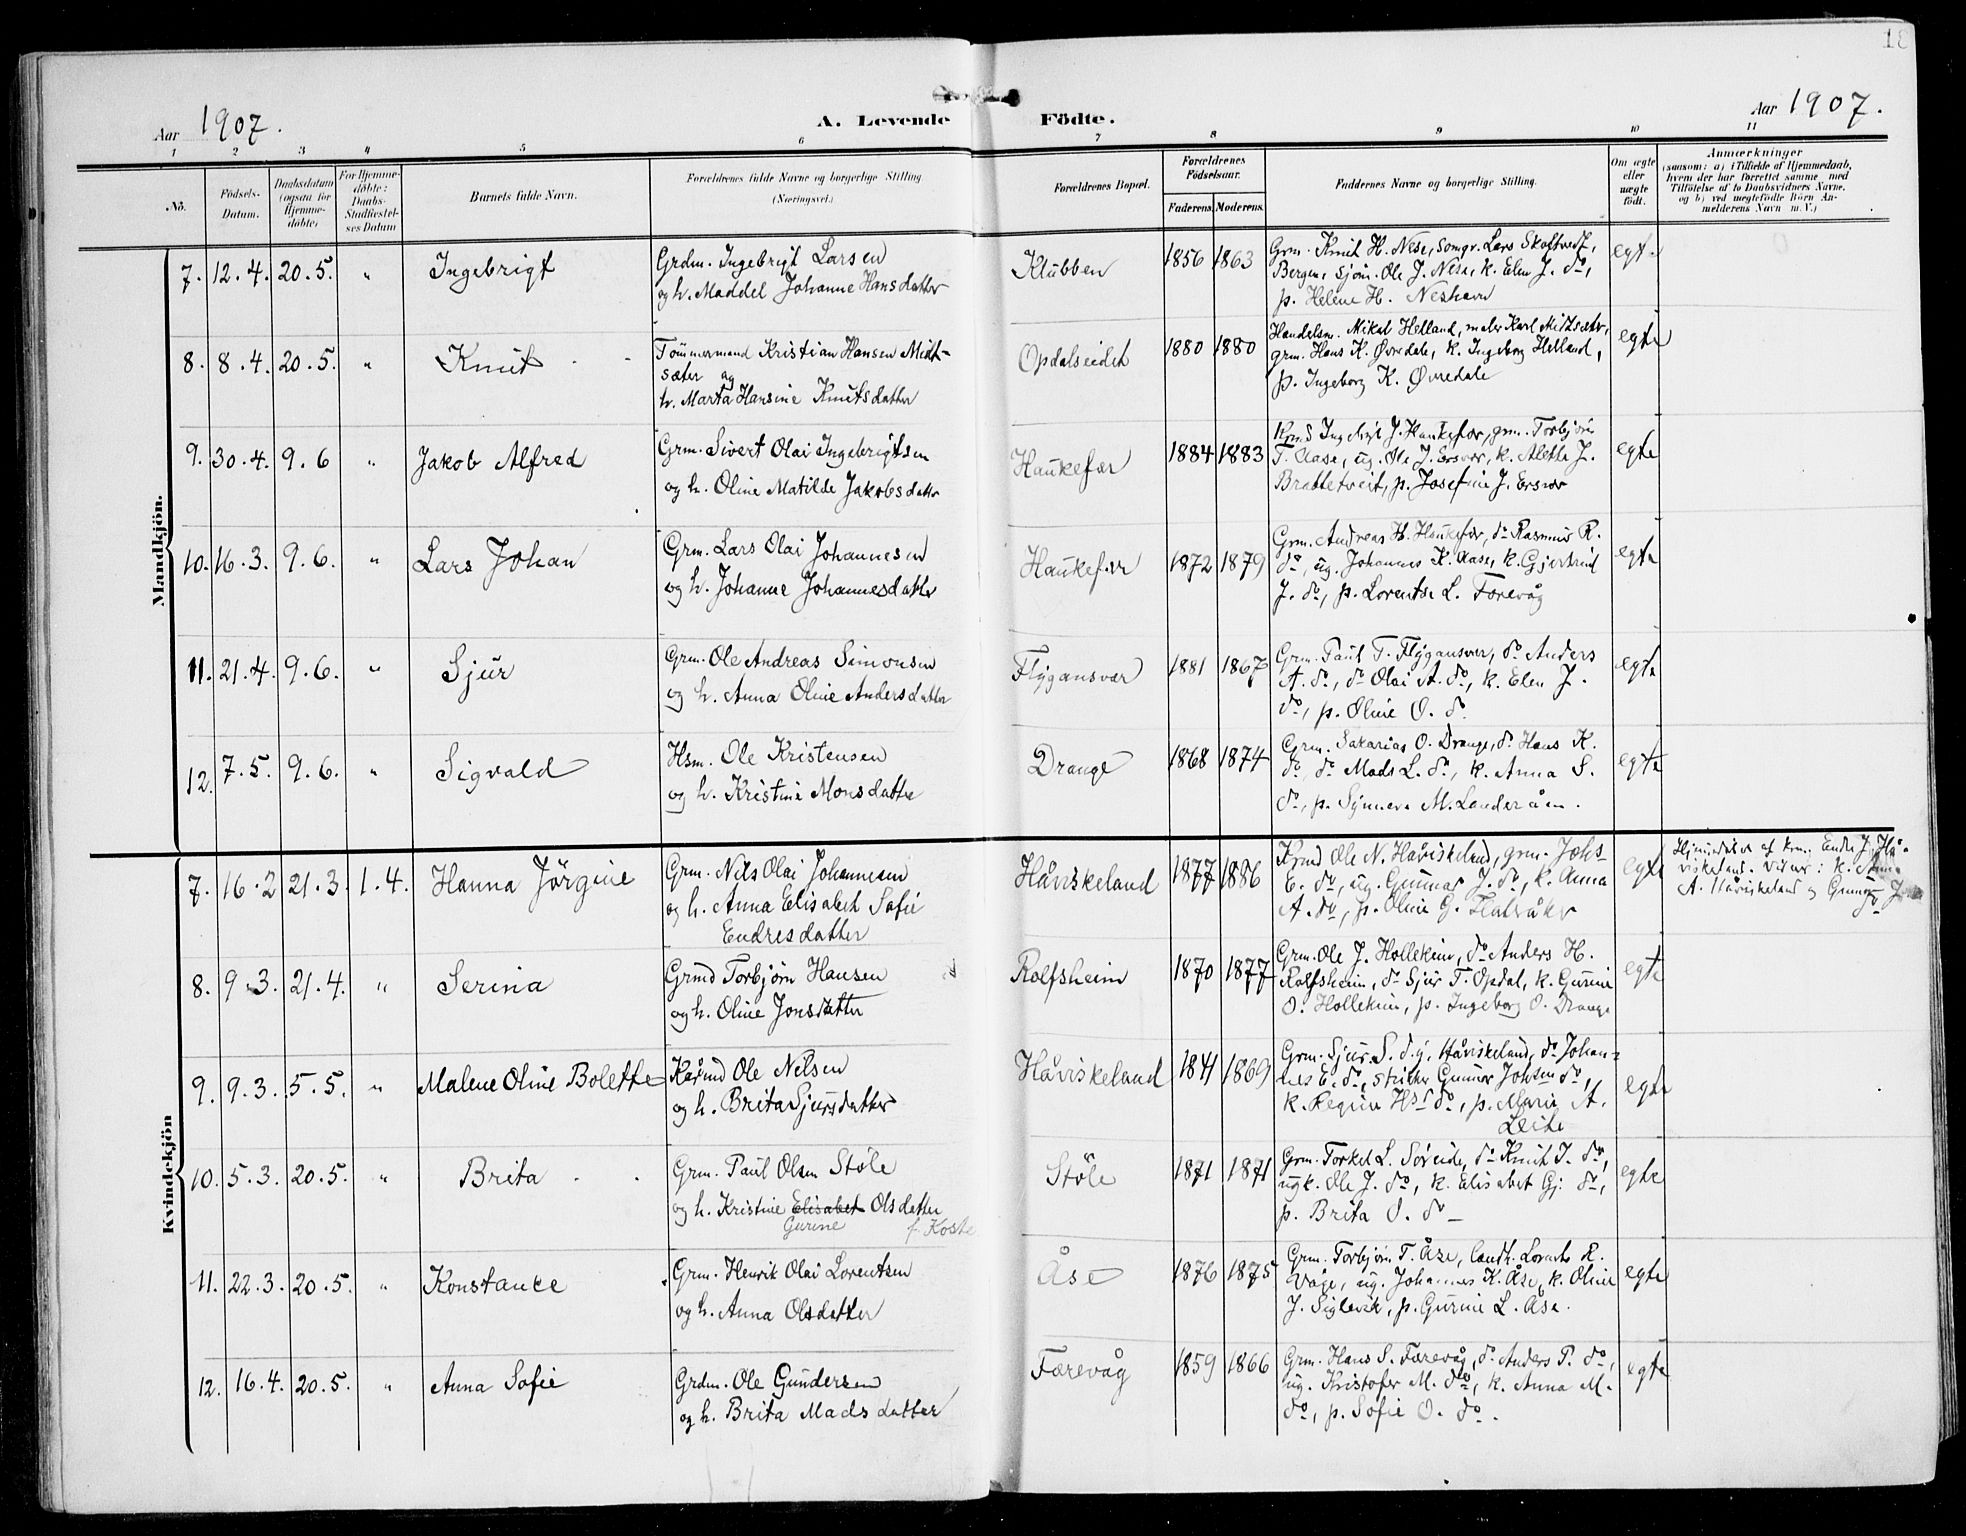 18
Aar 1907.
A. Levende Födte.
Aar 1907.
1 2 3 4 5 6 7 8 9 10 11
No.
Födsels-Datum.
Daabsdatum (ogsaa for Hjemmedöbte)
For Hjemmedöbte: Daabs-Stadfæstelses Datum
Barnets fulde Navn.
Forældrenes fulde Navne og borgerlige Stilling (Næringsvei.)
Forældrenes Bopæl.
Forældrenes Födselsaar.
Faderens. Moderens.
Faddernes Navne og borgerlige Stilling.
Om ægte eller uægte födt.
Anmærkninger
(saasom: a) i Tilfælde af Hjemmedaab,
hvem der har forrettet samme med
Tilföielse af to Daabsvidners Navne,
og b) ved uægtefödte Börn An-
melderens Navn m. V.)
Mandkjön.
7. 12.4. 20.5. " Ingebrigt
Grdm. Ingebrigt Larsen
og h. Maddel Johanne Hansdatter
Klubben 1856 1863
Grm. Knut H. Nese, Lars
Bergen, Ole J. Nese, k. Elen J. do,
p. Helene H. Neshavn
egt.
8. 8.4. 20.5. " Knut
Tömmermand Kristian Hansen Midt-
sæter og
h. Marta Hansine Knutsdatter
Opdalseidet 1880 1880
Handelsm. Mikal Helland, maler Karl Midtsæter,
grm. Hans K. Øvredale, k. Ingeborg Helland,
p. Ingeborg K. Øvredale
egte
9. 30.4. 9.6 " Jakob Alfred
Grm. Sivert Olai Ingebrigtsen
og h. Oline Matilde Jakobsdatter
Haukefær 1884 1883
J. Haukefær, grm. Torbjørn
T. Aase, ug. Ole J. Ersvær, k. Alette J.
Brattetveit, p. Josefine J. Ersvær
egte
10. 16.3. 9.6. " Lars Johan
Grm. Lars Olai Johannesen
og h. Johanne Johannesdatter
Haukefær 1872 1879
Grm. Andreas H. Haukefær, do Rasmus R.
do, ug. Johannes K. Aase, k. Gjertrud
J. do, p. Lorentse L. Færevåg
egte
11. 21.4. 9.6. " Sjur
Grm. Ole Andreas Simonsen
og h. Anna Oline Andersdatter
Flygansvær 1881 1867
Grm. Paul T. Flygansvær, do Anders
A. do, do Olai A. do, k. Elen J.
do, p. Oline O. do
egte
12. 7.5. 9.6. " Sigvald
Hsm. Ole Kristensen
og h. Kristine Monsdatter
Drange 1868 1874
Grm. Sakarias O. Drange, do Hans K.
do, do Mads L. do, k. Anna S.
do, p. Synneva M. Landeråen.
egte
Kvindekjön
7. 16.2 21.3. 1.4. Hanna Jörgine
Grm. Nils Olai Johannesen
og h. Anna Elisabet Sofie
Endresdatter
Håviskeland 1877 1886
Krmd Ole N. Håviskeland, grm. Johs
E. do, ug. Gunnar J. do, k. Anna
A. do, p. Oline G. Flatråker
egte
Hjemmedøbt af Endre J. Hå-
viskeland. Vidner: k. Anna
A. Håviskeland og Gunnar
8. 9.3. 21.4. " Serina
Grmd Torbjørn Hansen
og h. Oline Jonsdatter
Rolfsheim 1870 1877
Grm. Ole J. Hollekim, do Anders H.
Rolfsheim, do Sjur T. Opdal, k. Gurine
O. Hollekim, p. Ingeborg O. Drange
egte
9. 9.3. 5.5. " Malene Oline Bolette
Kårmd Ole Nilsen
og h. Brita Sjursdatter
Håviskeland 1841 1869
Grm. Sjur S. d.y. Håviskeland, do Johan-
nes E. do, Gunnar Johsen do,
k. Regine do, p. Marie A.
Leite
egte
10. 5.3. 20.5. " Brita
Grm. Paul Olsen Stöle
og h. Kristine Elisabet Olsdatter
Gurine
Støle 1871 1871
Grm. Torkel L. Søreide, do Knut T. do,
ugk. Ole J. do, k. Elisabet Gj. do,
p. Brita O. do
egte
11. 22.3. 20.5. " Konstance
Grm. Henrik Olai Lorentsen
og h. Anna Olsdatter
Åse 1876 1875
Grm. Torbjørn T. Åse, R.
Våge, ug. Johannes K. Åse, k. Oline
J. Siglevik, p. Gurine L. Åse.
egte
12. 16.4. 20.5. " Anna Sofie
Grdm. Ole Gundersen
og h. Brita Madsdatter
Færevåg 1859 1866
Grm. Hans S. Færevåg, do Anders P. do,
ug. Kristofer M. do, k. Anna M.
do, p. Sofie O. do.
egte